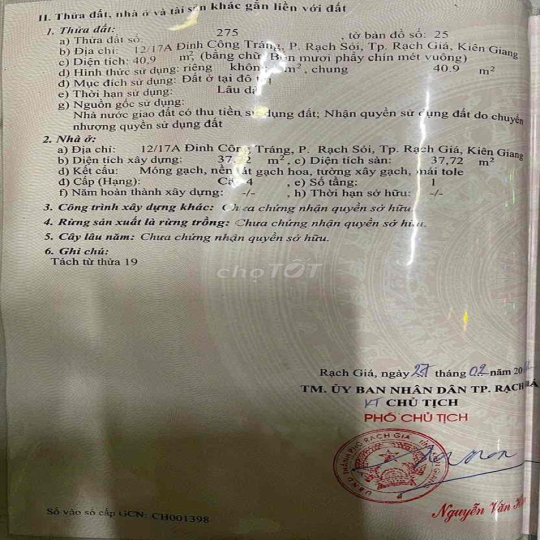 II. Thửa đất, nhà ở và tài sản khác gắn liền với đất
1. Thửa đất:
a) Thửa đất số: 275 , tờ bản đồ số: 25
b) Địa chỉ: 12/17A Đinh Công Tráng, P. Rạch Sỏi, Tp. Rạch Giá, Kiên Giang
c) Diện tích: 40,9 m², (bằng chữ: Bốn mươi phẩy chín mét vuông)
d) Hình thức sử dụng: riêng không m², chung 40.9 m²
đ) Mục đích sử dụng: Đất ở tại đô thị
e) Thời hạn sử dụng: Lâu dài
g) Nguồn gốc sử dụng:
Nhà nước giao đất có thu tiền sử dụng đất; Nhận quyền sử dụng đất do chuyển
nhượng quyền sử dụng đất
2. Nhà ở:
a) Địa chỉ: 12/17A Đinh Công Tráng, P. Rạch Sỏi, Tp. Rạch Giá, Kiên Giang
b) Diện tích xây dựng: m², c) Diện tích sàn: 37,72 m²
d) Kết cấu: Móng gạch, nền lát gạch hoa, tường xây gạch, mái tole
đ) Cấp (Hạng): Cấp 4 , e) Số tầng: 1
f) Năm hoàn thành xây dựng: -/- , h) Thời hạn sở hữu: -/-
3. Công trình xây dựng khác: Chưa chứng nhận quyền sở hữu.
4. Rừng sản xuất là rừng trồng: Chưa chứng nhận quyền sở hữu.
5. Cây lâu năm: Chưa chứng nhận quyền sở hữu.
6. Ghi chú:
Tách từ thửa 19
chợTỐT
Rạch Giá, ngày 27 tháng 02 năm
TM. ỦY BAN NHÂN DÂN TP. RẠCH GIÁ
KT CHỦ TỊCH
PHÓ CHỦ TỊCH
Nguyễn Văn
Số vào sổ cấp GCN: CH001398